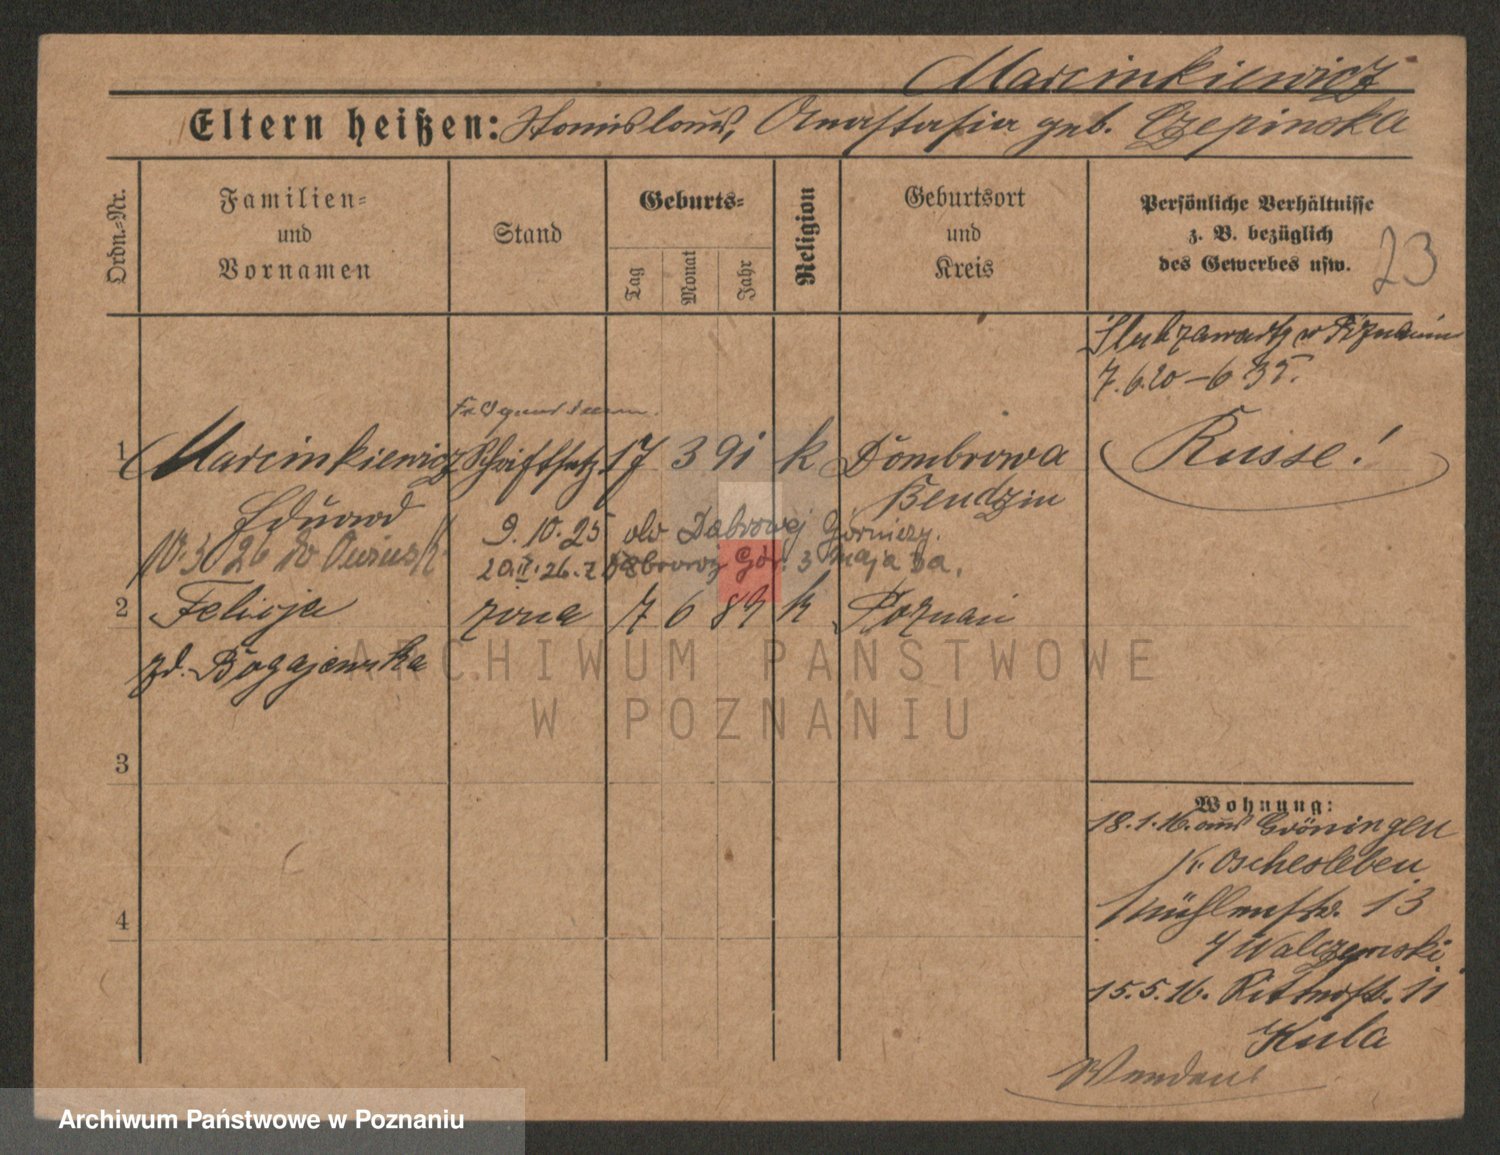 Marcinkiewicz
Eltern heißen: Stanislaus, Anastasia geb. Czepinska
Ordn.-Nr.
Familien-
und
Vornamen
Stand
Geburts-
Tag
Monat
Jahr
Religion
Geburtsort
und
Kreis
Persönliche Verhältnisse
z. B. bezüglich
des Gewerbes usw.
23
Slub zawarty w Poznaniu
7.6.20 – 635.
1 Marcinkiewicz Schriftsetz. 17 3 91 k Dombrowa
Russe!
Eduard
Bendzin
9.10.25 do Dabrowej Górniczy.
10.3.26 do
20.II.26. z Dabrowej Gór. 3 maja 3a.
2 Felicja żona 7 6 89 k Poznań
zd. Bogajewska
3
4
Wohnung:
18.1.16. aus Gröningen
Kr. Oschersleben
Mühlenstr. 13
b/ Walczewski
15.5.16. Ritterstr. 11
Kula
ARCHIWUM PAŃSTWOWE
W POZNANIU
Archiwum Państwowe w Poznaniu